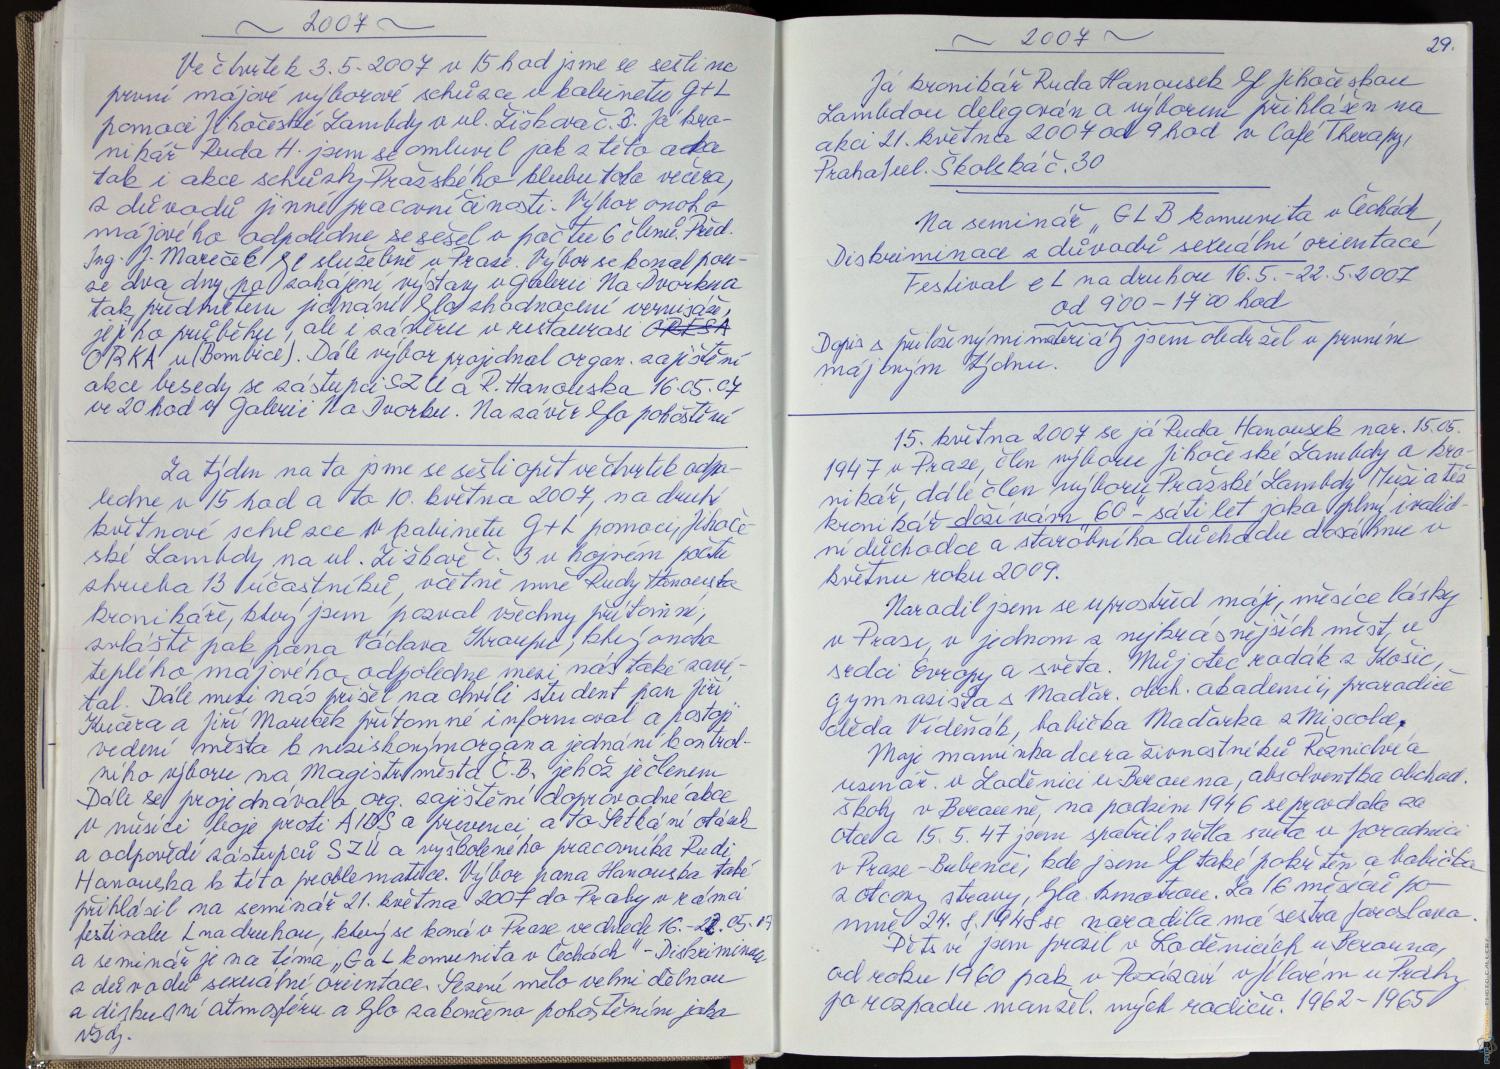 ~ 2007 ~
Ve čtvrtek 3.5.2007 v 15 hod jsme se sešli na
první májové výborové schůzce v kabinetu G+L
pomoci Jihočeské Lambdy v ul. Žižkova č.3. Já kro-
nikář Ruda H. jsem se omluvil jak z této
tak i akce schůzky Pražského klubu toto večera,
z důvodů jinné pracovní činosti. Výbor onoho
májového odpoledne se sešel v počtu 6 členů. Před.
Ing. J. Mareček služebně v Praze. Výbor se konal pou-
ze dva dny po zahájení výstavy v galerii Na Dvorku a
tak předmětem jednání zhodnocení vernisáže,
jejího průběhu, ale i závěru v restauraci
ORKA u (Bombice). Dále výbor projednal organ. zajištění
akce besedy se zástupci SZÚ a R. Hanouska 16.05.07
ve 20 hod v Galerii Na Dvorku. Na závěr pohoštění
Za týden na to jsme se sešli opět ve čtvrtek odpo-
ledne v 15 hod a to 10. května 2007, na druhé
květnové schůzce v kabinetu G+L pomoci, Jihoče-
ské Lambdy na ul. Žižkově č. 3 v hojném počtu
zhruba 13 účastníků, včetně mně Rudy Hanouska
kronikáře, který jsem pozval všechny přítomní,
zvláště pak pana Václava Kroupu, který onoho
teplého májového odpoledne mezi nás také zaví-
tal. Dále mezi nás přišel na chvíli student pan Jiří
Kučera a Jiří Mareček přítomné informoval o postoji
vedení města k neziskovým organ a jednání kontrol-
ního výboru na Magistr. města Č.B. jehož je členem
Dále se projednávalo org. zajištění doprovodné akce
v měsíci boje proti AIDS a prevenci, a to Setkání otázek
a odpovědí zástupců SZÚ a vyškoleného pracovníka Rudi
Hanouska k této problematice. Výbor pana Hanouska také
přihlásil na seminář 21. května 2007 do Prahy v rámci
festivalu L na druhou, který se koná v Praze ve dnech 16.-22.05.
a seminář je na téma „G a L komunita v Čechách" - Diskriminace
z důvodů sexuální orientace. Sezení mělo velmi dělnou
a diskusní atmosféru a zakončeno pohoštěním jako
vždy.
~ 2007 ~
29.
Já kronikář Ruda Hanousek jihočeskou
Lambdou delegován a výborem přihlášen na
akci 21. května 2007 od 9 hod v Café Therapy,
Praha 1 ul. Školská č. 30
Na seminář „GLB komunita v Čechách,
Diskriminace z důvodů sexuální orientace
Festival eL na druhou 16.5.-22.5.2007
od 9⁰⁰ - 17⁰⁰ hod
Dopis s přiloženými materiály jsem obdržel v prvním
májovým týdnu.
15. května 2007 se já Ruda Hanousek nar. 15.05.
1947 v Praze, člen výboru Jihočeské Lambdy a kro-
nikář, dále člen výboru Pražské Lambdy též
kronikář dožívám 60-sáti let jako plný invalid-
ní důchodce a starobního důchodu dosáhnu v
květnu roku 2009.
Narodil jsem se uprostřed máje, měsíce lásky
v Praze, v jednom z nejkrásnějších měst, v
srdci Evropy a světa. Můj otec rodák z Košic,
gymnazista s Maďar. obch. akademií, prarodiče
děda Vídeňák, babička Maďarka z Miscolce,
Moje maminka dcera živnostníků Řeznictví a
uzenář. v Loděnici u Berouna, absolventka obchod.
školy v Berouně, na podzim 1946 se provdala za
otce a 15.5.47 jsem spatřil světlo světa v porodnici
v Praze-Bubenci, kde jsem také pokřtěn a babička
z otcovy strany, kmotrou. Za 16 měsíců po
mně 24.8.1948 se narodila má sestra Jaroslava.
Dětství jsem prožil v Loděnicích u Berouna,
od roku 1960 pak v Posázaví v Jílovém u Prahy
po rozpadu manžel. mých rodičů. 1962-1965